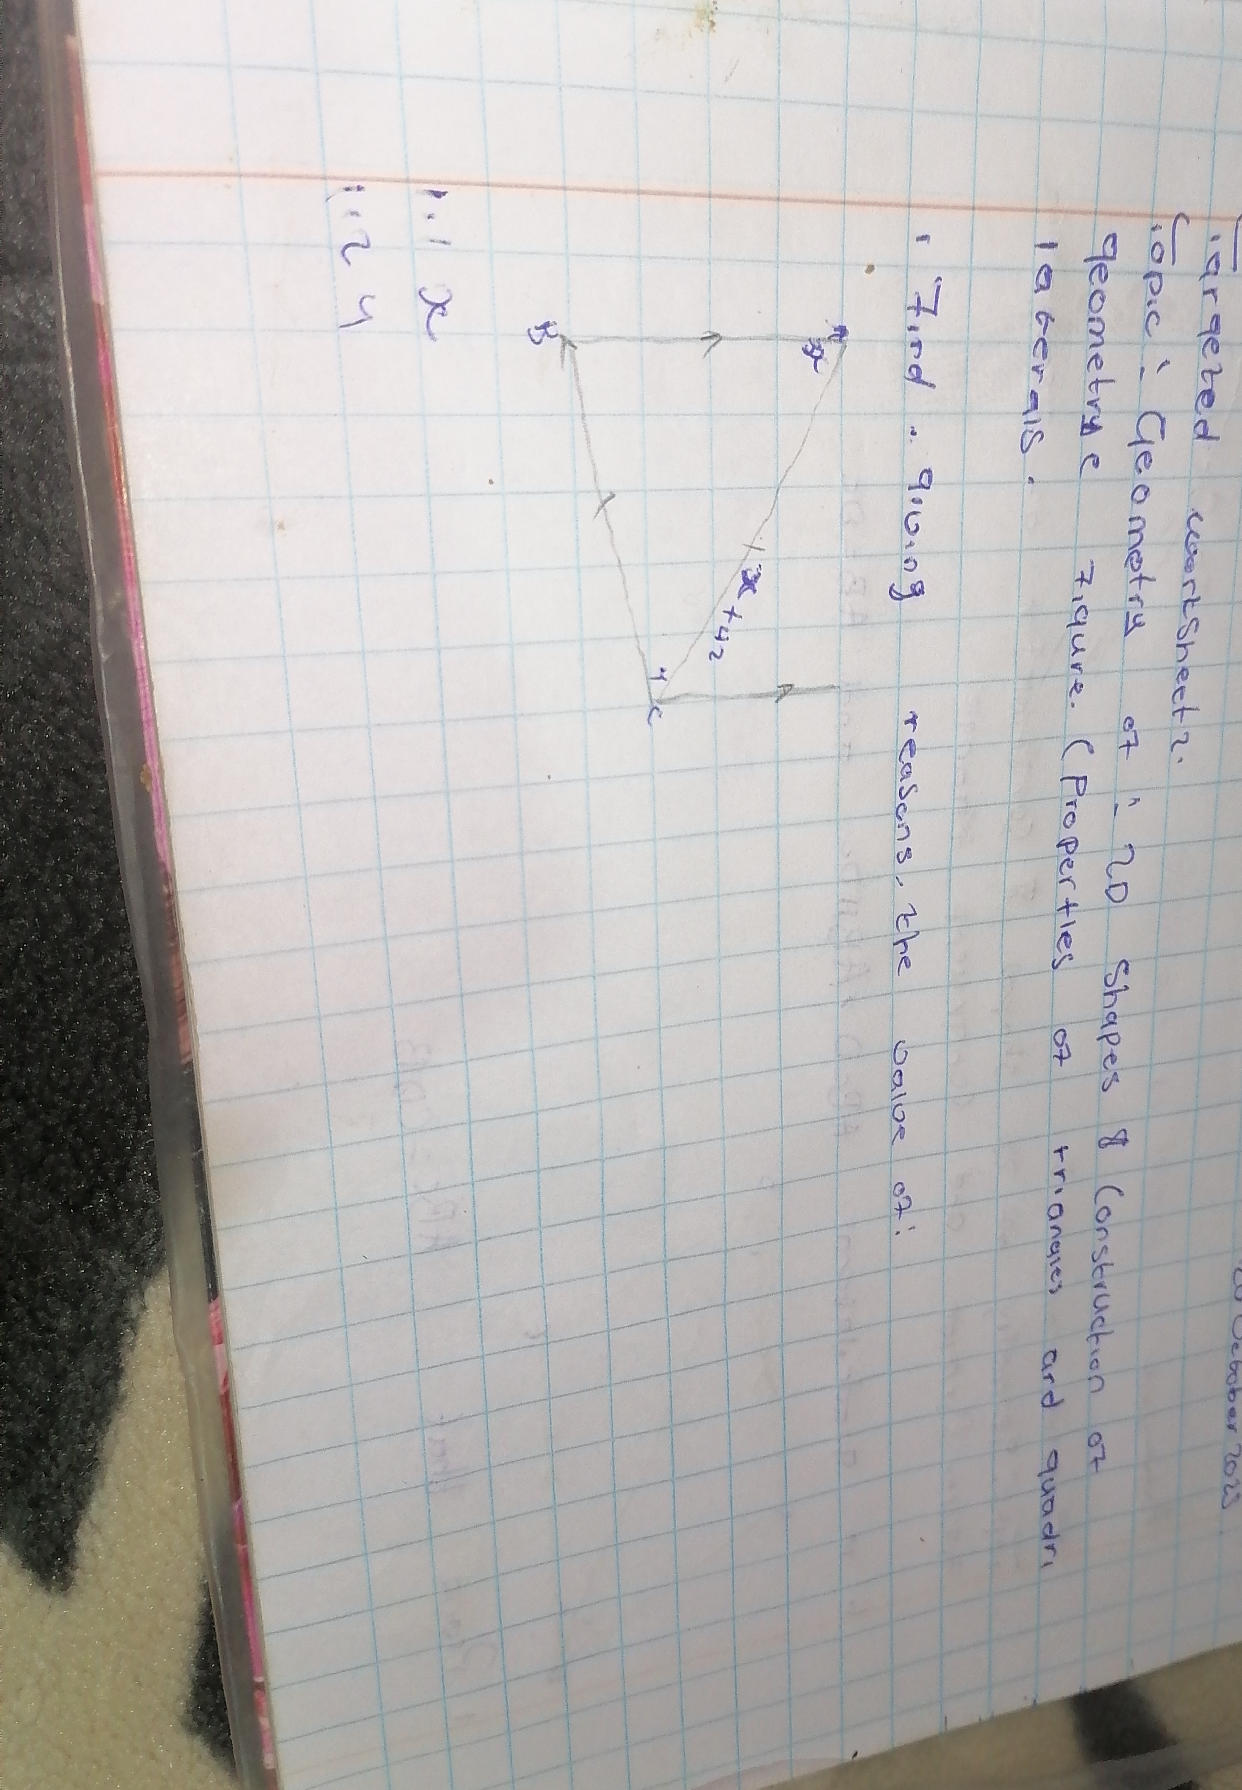 20 October 2025
Targeted worksheet 2.
Topic: Geometry of: 2D Shapes & Construction of
geometrye figure. (Properties of triangles and quadri
laterals.
1 Find, giving reasons, the value of:
x
B
x + 42
y
C
1.1 x
1.2 y